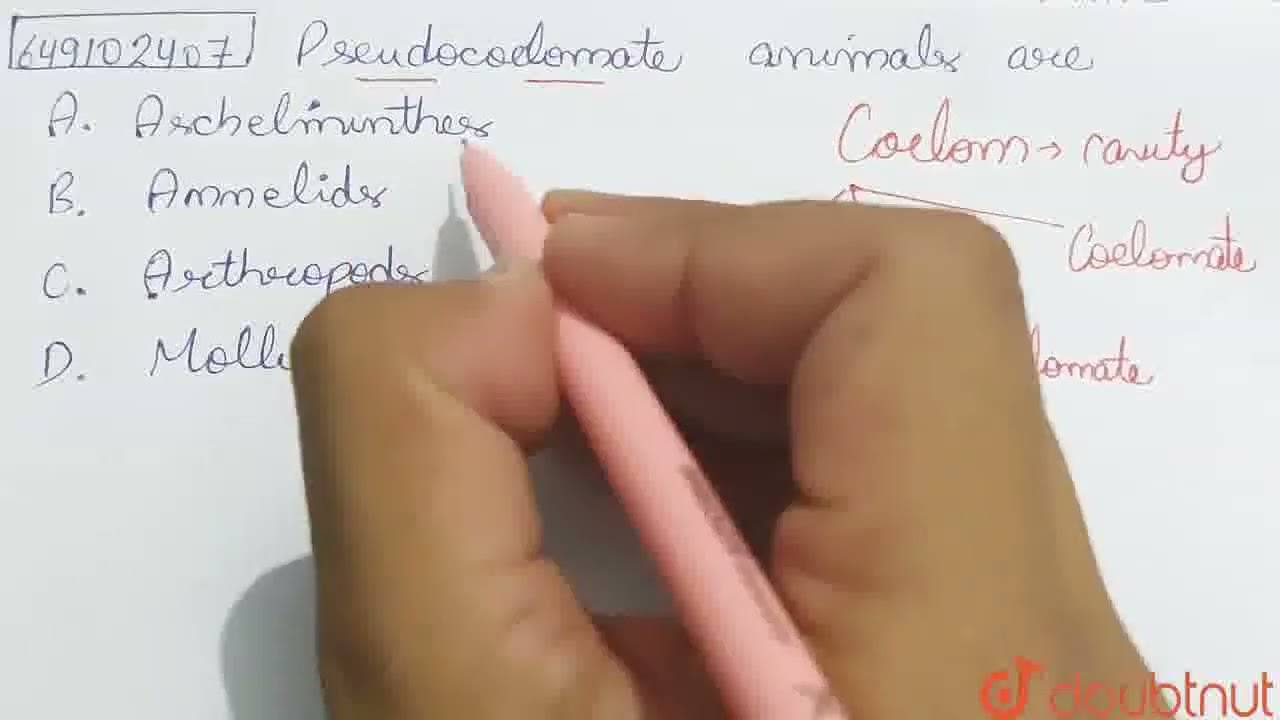 649102407 Pseudocoelomate animals are
A. Aschelminthes
B. Annelids
C. Arthropods
D.
Coelom → cavity
Coelomate
doubtnut